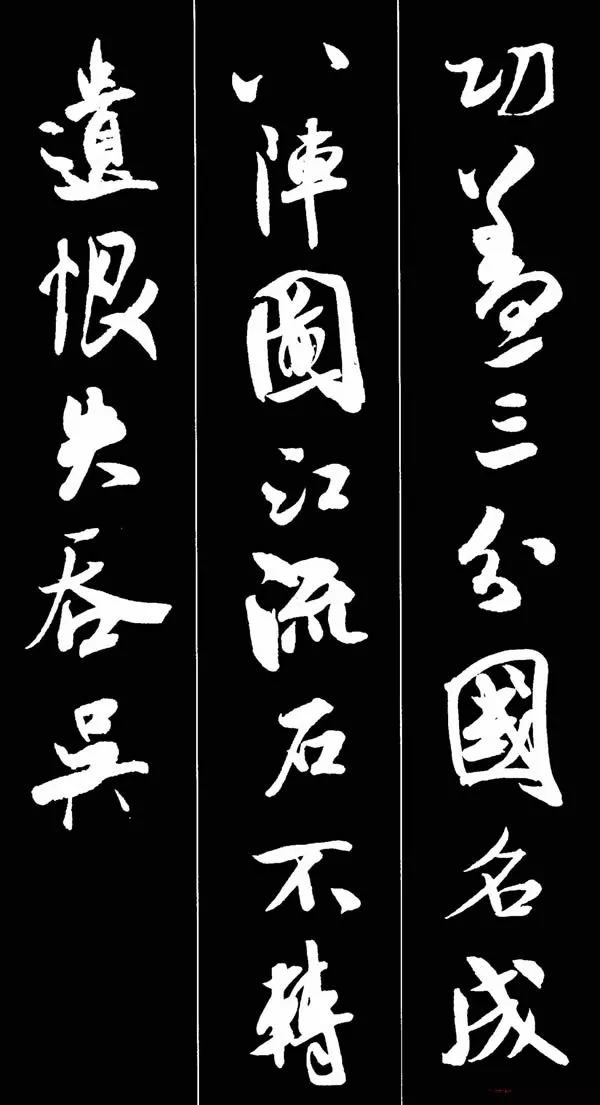 功蓋三分國名成
八陣圖江流石不轉
遺恨失吞吳